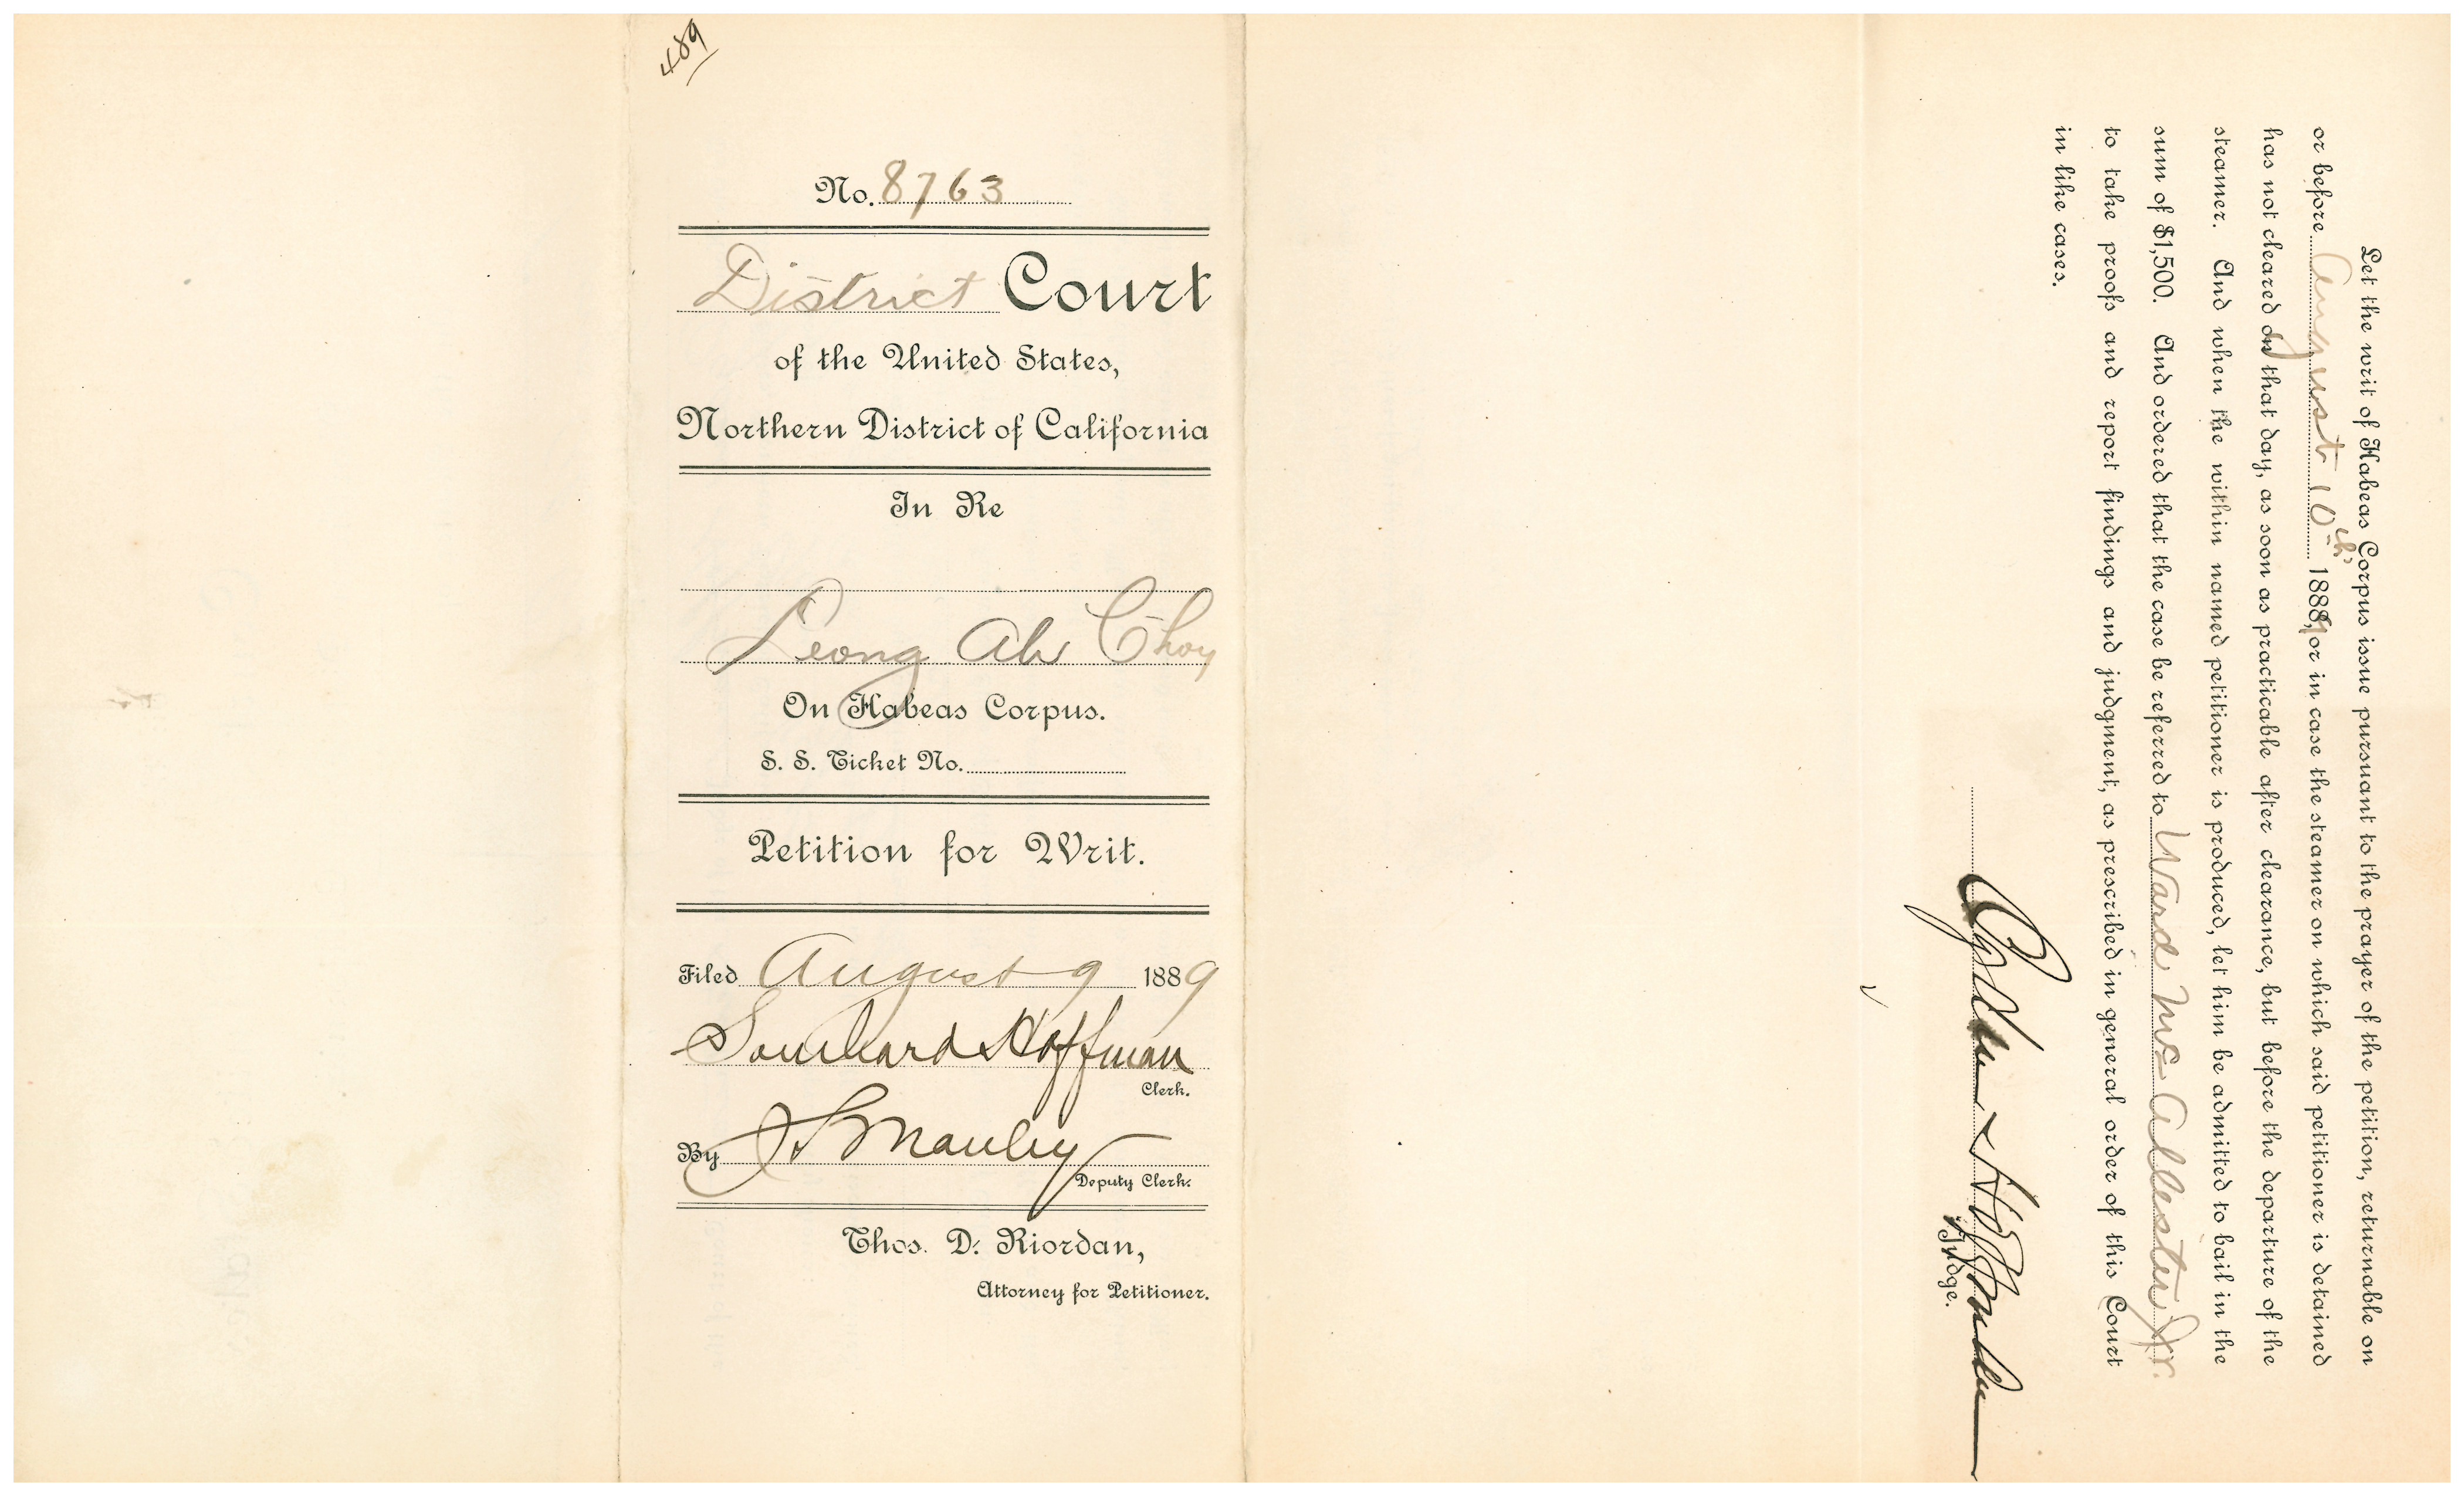 489
No. 8763
District Court
of the United States,
Northern District of California
In Re
Leong Ah Choy
On Habeas Corpus.
S. S. Ticket No.
Petition for Writ.
Filed August 9 1889
Southard Hoffman
Clerk.
By J. S. Manley
Deputy Clerk.
Thos. D. Riordan,
Attorney for Petitioner.
Let the writ of Habeas Corpus issue pursuant to the prayer of the petition, returnable on
or before August 10th 1889, or in case the steamer on which said petitioner is detained
has not cleared on that day, as soon as practicable after clearance, but before the departure of the
steamer. And when the within named petitioner is produced, let him be admitted to bail in the
sum of $1,500. And ordered that the case be referred to Ward McAllester Jr.
to take proofs and report findings and judgment, as prescribed in general order of this Court
in like cases.
Hoffman
Judge.